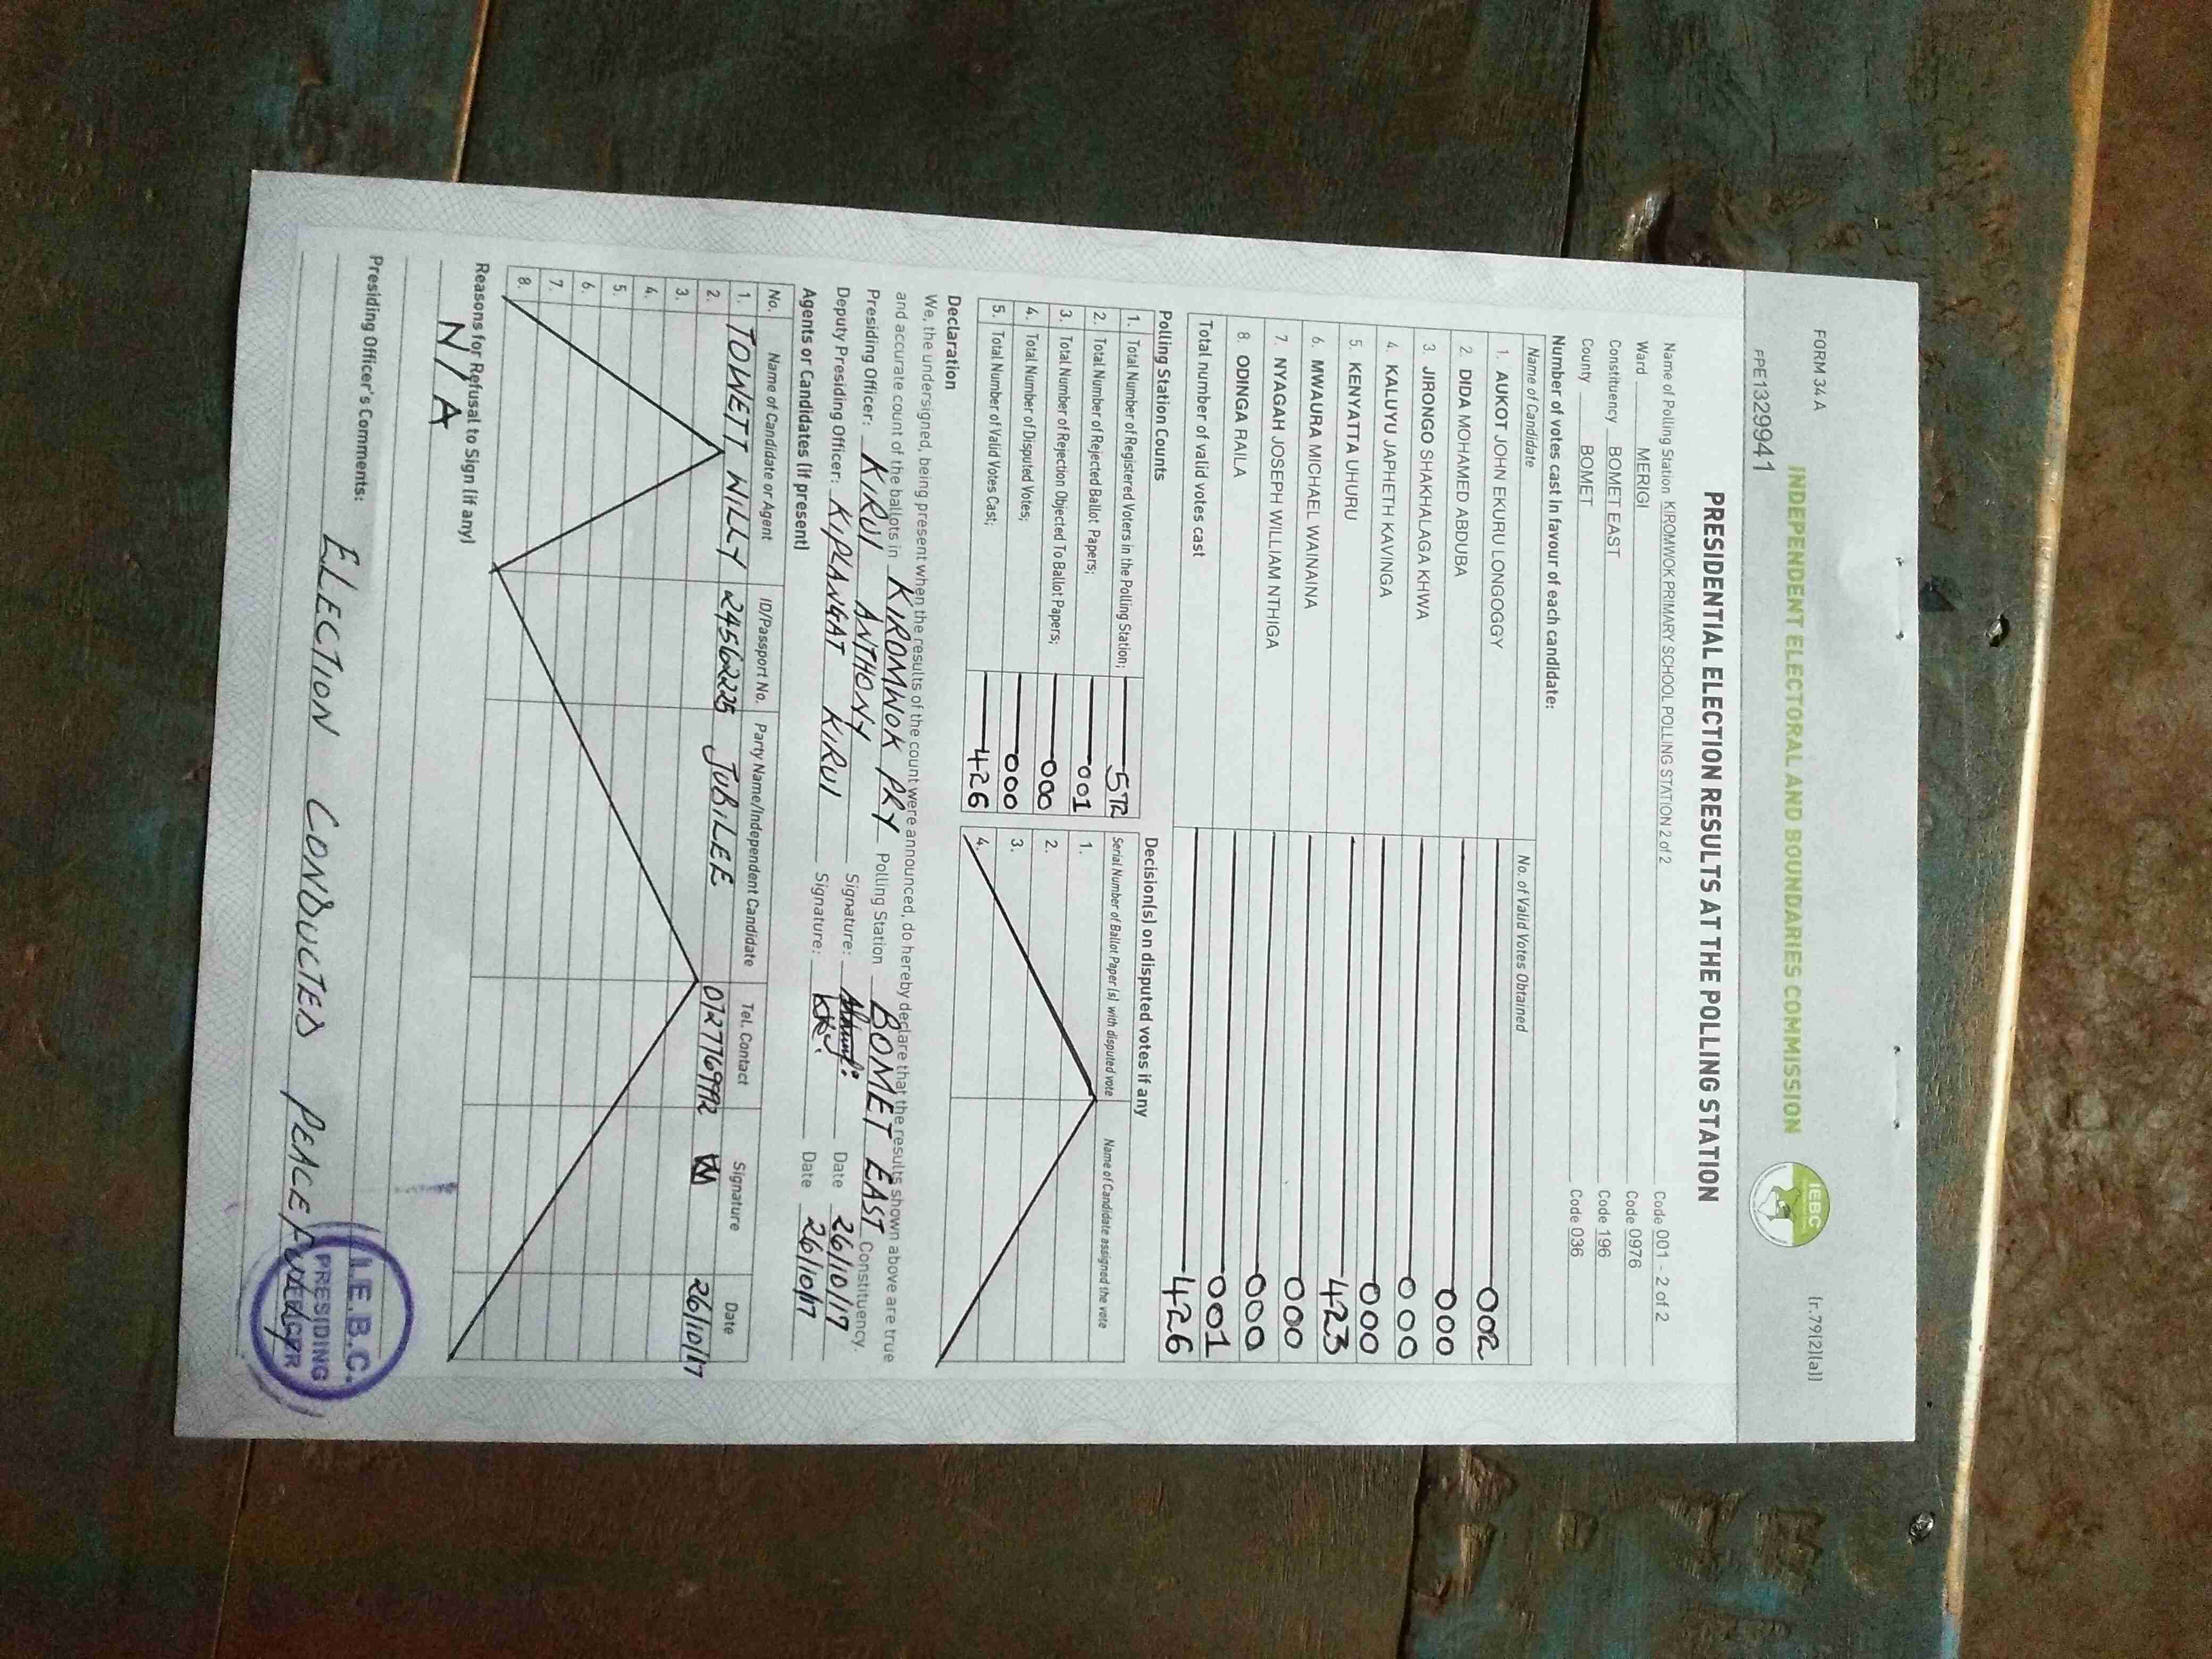 FORM 34 A
(r.79(2)(a))
INDEPENDENT ELECTORAL AND BOUNDARIES COMMISSION
IEBC
FPE1329941
PRESIDENTIAL ELECTION RESULTS AT THE POLLING STATION
Name of Polling Station KIROMWOK PRIMARY SCHOOL POLLING STATION 2 of 2 Code 001 - 2 of 2
Ward MERIGI Code 0976
Constituency BOMET EAST Code 196
County BOMET Code 036
Number of votes cast in favour of each candidate:
Name of Candidate No. of Valid Votes Obtained
1. AUKOT JOHN EKURU LONGOGGY 002
2. DIDA MOHAMED ABDUBA 000
3. JIRONGO SHAKHALAGA KHWA 000
4. KALUYU JAPHETH KAVINGA 000
5. KENYATTA UHURU 423
6. MWAURA MICHAEL WAINAINA 000
7. NYAGAH JOSEPH WILLIAM NTHIGA 000
8. ODINGA RAILA 001
Total number of valid votes cast 426
Polling Station Counts
1. Total Number of Registered Voters in the Polling Station; 572
2. Total Number of Rejected Ballot Papers; 001
3. Total Number of Rejection Objected To Ballot Papers; 000
4. Total Number of Disputed Votes; 000
5. Total Number of Valid Votes Cast; 426
Decision(s) on disputed votes if any
Serial Number of Ballot Paper(s) with disputed vote Name of Candidate assigned the vote
1.
2.
3.
4.
Declaration
We, the undersigned, being present when the results of the count were announced, do hereby declare that the results shown above are true
and accurate count of the ballots in KIROMWOK PRY Polling Station BOMET EAST Constituency.
Presiding Officer: KIRUI ANTHONY Signature: Date 26/10/17
Deputy Presiding Officer: KIPLANGAT KIRUI Signature: Date 26/10/17
Agents or Candidates (if present)
No. Name of Candidate or Agent ID/Passport No. Party Name/Independent Candidate Tel. Contact Signature Date
1. TOWETT WILLY 24562225 JUBILEE 0727769992 26/10/17
2.
3.
4.
5.
6.
7.
8.
Reasons for Refusal to Sign (if any)
N/A
Presiding Officer's Comments:
ELECTION CONDUCTED PEACEFULLY
I.E.B.C.
PRESIDING
OFFICER